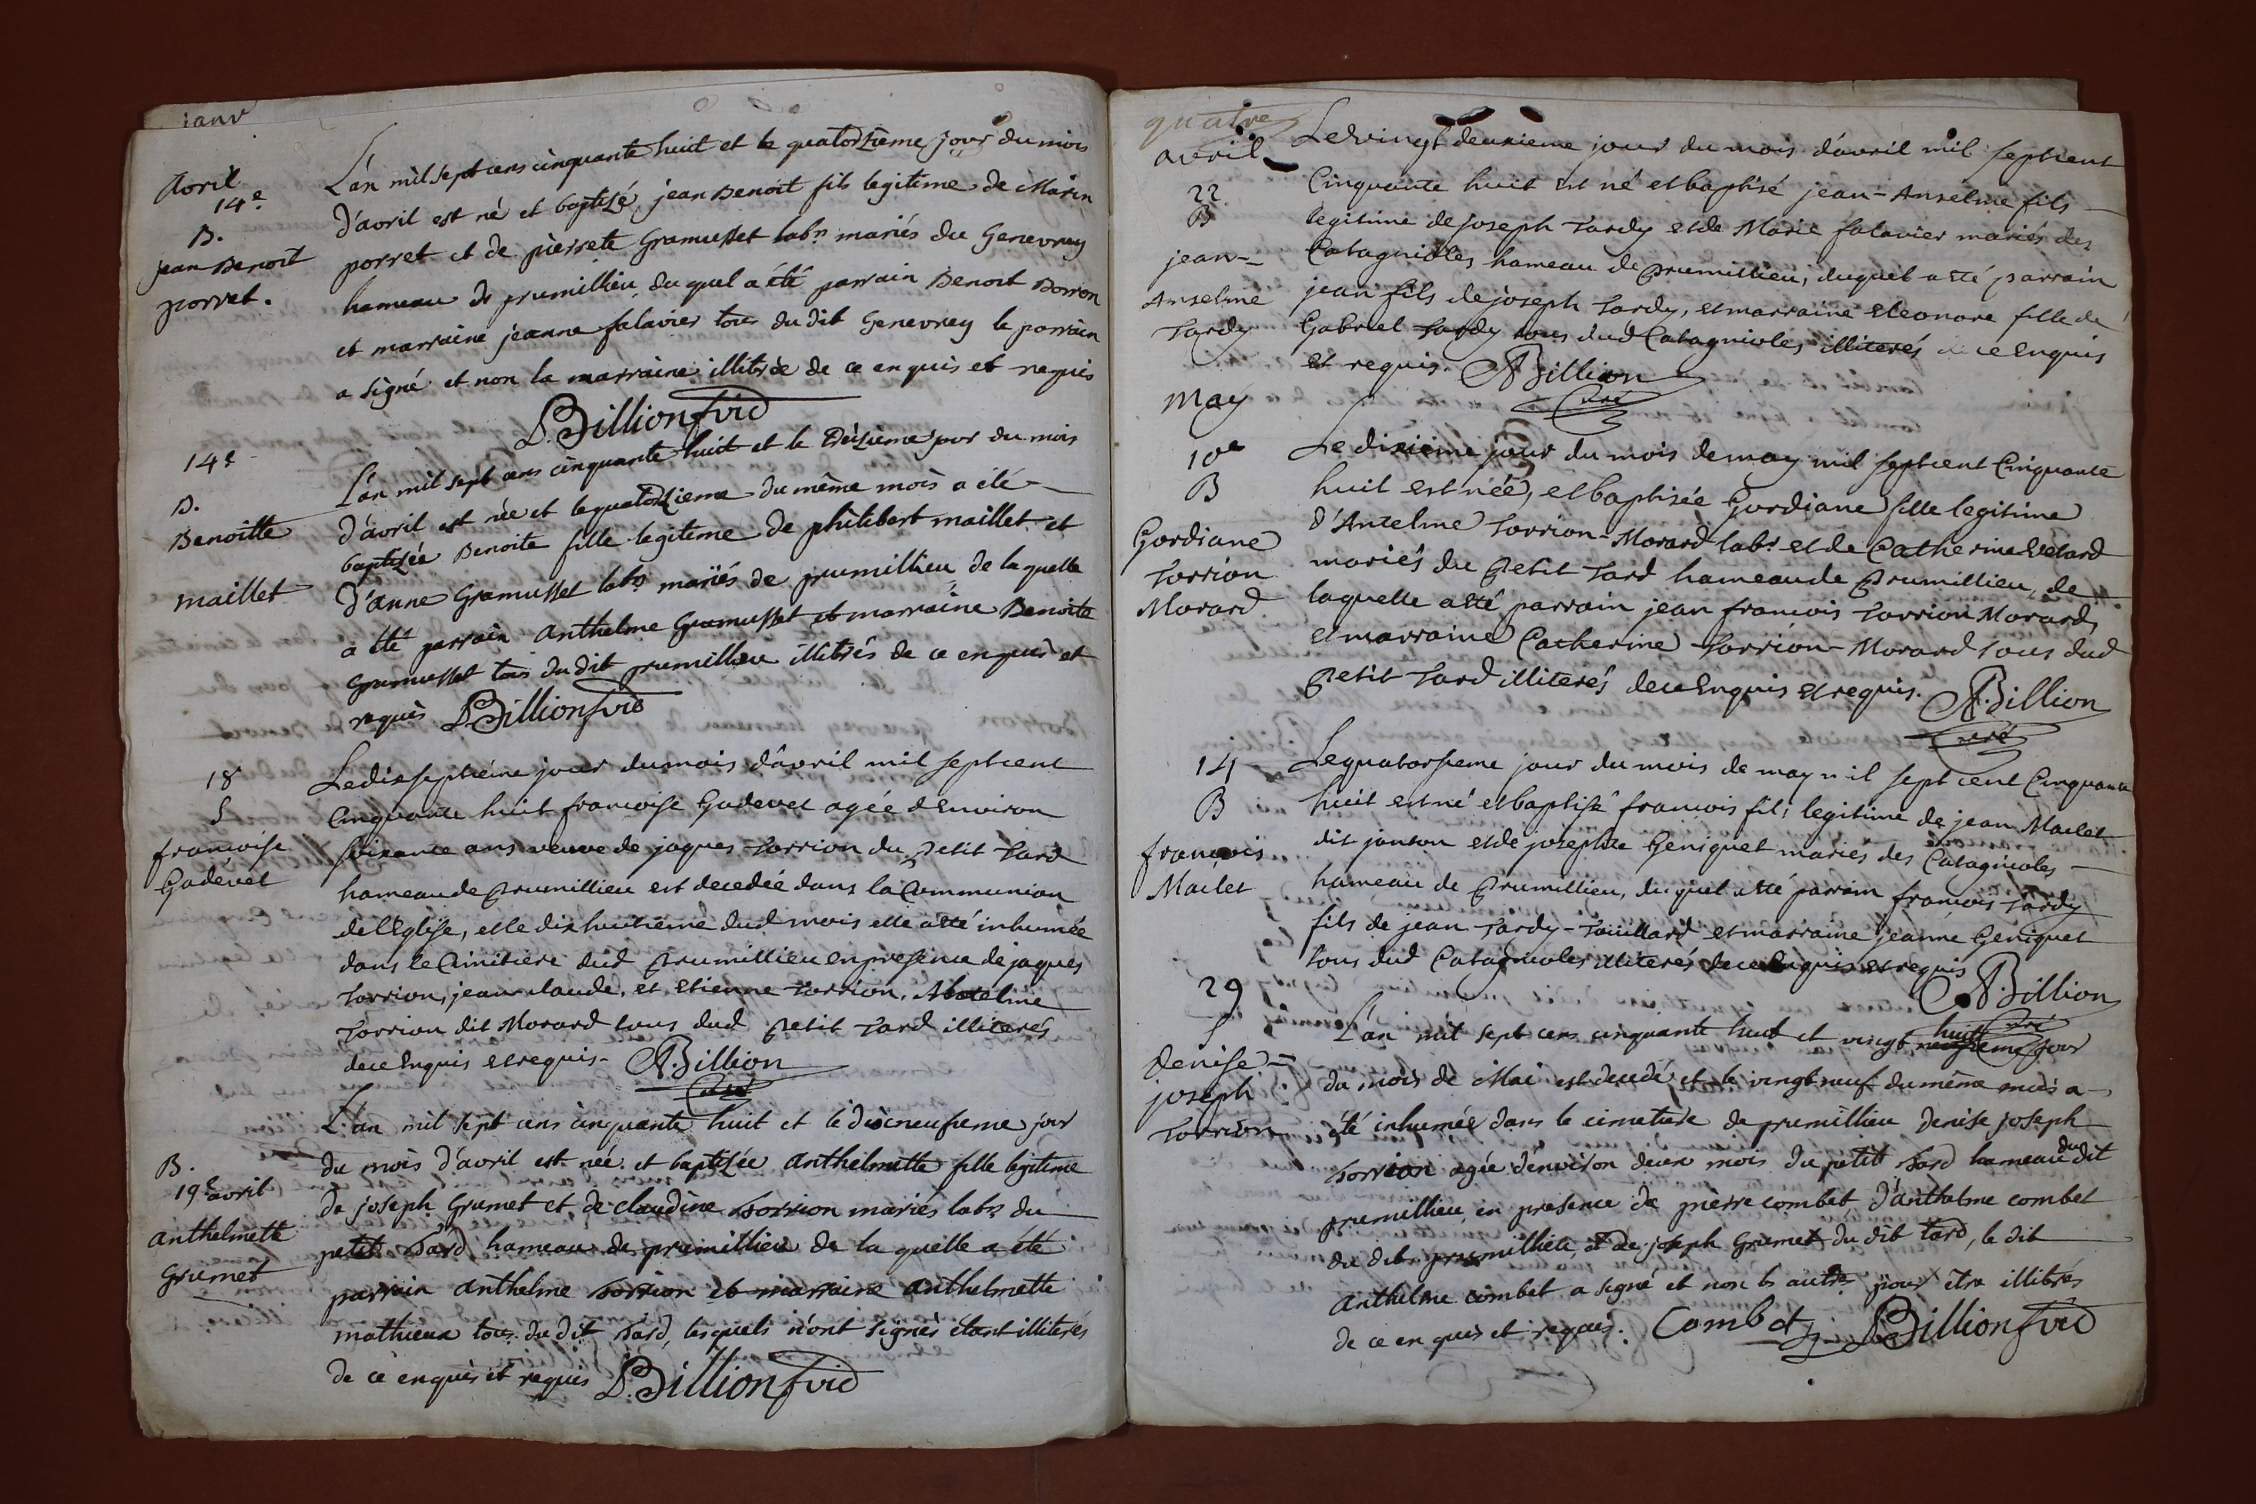 janv
Avril
14e
B.
jean Benoit
porret.
L'an mil sept cens cinquante huit et le quatorzieme jour du mois
d'avril est né et baptizé jean Benoit fils legitime de Marin
porret et de pierrete Gramusset labrs mariés du Genevray
hameau de prumillieu duquel a été parrain Benoit Borron
et marraine jeanne falavier tous du dit Genevrey le parrain
a signé et non la marraine illitrée de ce enquis et requis
Billion
14e
B.
Benoitte
maillet
L'an mil sept cens cinquante huit et le treizieme jour du mois
d'avril est née et le quatorzieme du même mois a été
baptizée Benoite fille legitime de philibert maillet et
d'anne Gramusset labrs mariés de prumillieu de laquelle
a été parrain anthelme Gramusset et marraine Benoite
Gramusset tous du dit prumillieu illitrés de ce enquis et
requis Billion
18
S
francoise
Gadevet
Le dixseptiéme jour du mois d'avril mil sept cent
Cinquante huit francoise Gadevet agée d'Environ
soixante ans veuve de jaques Torrion du Petit Tard
hameau de Prumillieu est decedée dans la Communion
de l'Eglise, et le dix huitiéme dud mois elle a été inhumée
dans le Cimitiere dud Prumillieu en presence de jaques
Torrion, jean claude, et Etienne Torrion, Anthelme
Torrion dit Morard tous dud Petit Tard illiterés
de ce Enquis et requis - Billion
Curé
B.
19e avril
anthelmette
Grumet
L'an mil sept cens cinquante huit et le dixneufieme jour
du mois d'avril est née et baptizée anthelmette fille legitime
de joseph Grumet et de claudine Torrion mariés labrs du
petit Tard hameau de prumillieu de laquelle a été
parrain anthelme Torrion et marraine anthelmette
mathieux tous du dit Tard, lesquels n'ont signés étant illiterés
de ce enquis et requis Billion
quatre
avril
22
B
jean-
Anselme
Tardy
Le vingt deuxieme jour du mois d'avril mil sept cent
Cinquante huit est né et baptisé jean-Anselme fils
legitime de joseph Tardy et de Marie falavier mariés des
Catagnioles hameau de Prumillieu, duquel a été parrain
jean fils de joseph Tardy, et marraine Eleonore fille de
Gabriel Tardy tous dud Catagnioles illiterés de ce Enquis
et requis. Billion
Curé
May
10e
B
Gordiane
Torrion
Morard
Le dixiéme jour du mois de may mil sept cent Cinquante
huit est née, et baptisée Gordiane fille legitime
d'Antelme Torrion-Morard labr et de Catherine Evetard
mariés du Petit Tard hameau de Prumillieu, de
laquelle a été parrain jean francois Torrion Morard,
et marraine Catherine Torrion-Morard tous dud
Petit Tard illiterés de ce Enquis et requis. Billion
Curé
14
B
francois
Maclet
Le quatorsieme jour du mois de may mil sept cent Cinquante
huit est né et baptisé francois fils legitime de jean Maclet
dit janton et de josephte Geniquet mariés des Catagnioles
hameau de Prumillieu, duquel a été parrain francois Tardy
fils de jean Tardy-Touillard et marraine jeanne Geniquet
tous dud Catagnioles illiteres de ce Enquis et requis
Billion
Curé
29
S
denise-
joseph
Torrion
L'an mil sept cens cinquante huit et vingt huit jour
du mois de Mai est decedé et le vingt neuf du même mois a
été inhumée dans le cimetiere de prumillieu denise joseph
Torrion agée d'environ deux mois du petit Tard hameau du dit
prumillieu, en presence de pierre combet, d'anthelme combet
du dit prumillieu, et de joseph Grumet du dit tard, le dit
anthelme combet a signé et non les autres pour être illitrés
de ce enquis et requis. Combet Billion